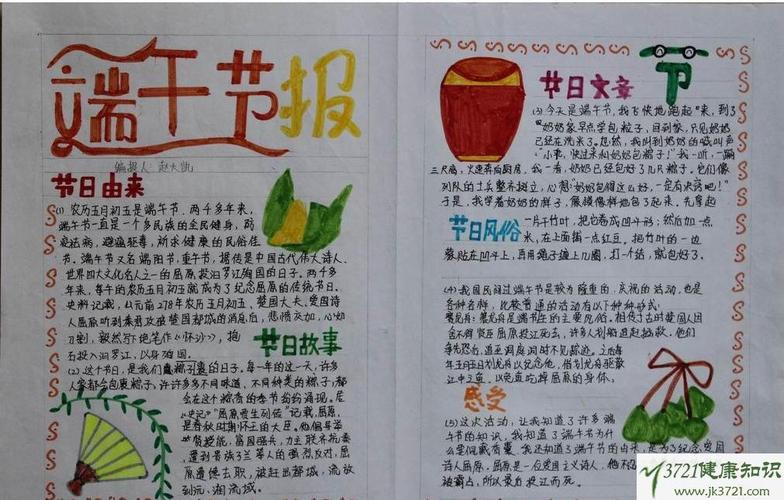 端午节报
编报人:赵大凯
节日由来
(1)农历五月初五是端午节.两千多年来,
端午节一直是一个多民族的全民健身,防
疫祛病,避瘟驱毒,祈求健康的民俗佳
节。端午节又名端阳节,重午节,据传是中国古代伟大诗人、
世界四大文化名人之一的屈原投汨罗江殉国的日子。两千多
年来,每年的农历五月初五就成为了纪念屈原的传统节日。
史料记载,公元前278年农历五月初五,楚国大夫、爱国诗
人屈原听到秦君攻破楚国都城的消息后,悲愤交加,心如
刀割,毅然写下绝笔作《怀沙》,抱
石投入汨罗江,以身殉国。
节日故事
(2)这个节日,是我们裹粽子的日子。每一年的这一天,许多
人家都会包裹粽子,许许多多不同味道,不同种类的粽子,都
会在这个粽香的季节纷纷涌现。
史记》"屈原贾生列传"记载,屈原,
是春秋时期怀王的大臣。他倡导举
贤授能,富国强兵,力主联齐抗秦,
遭到贵族子兰等人的强烈反对,屈
原遭馋去职,被赶出都城,流放
到沅、湘流域。
节
节日文章
(3)今天是端午节,我飞快地跑起来,到了
奶奶家早点学包粽子,回到家,只见奶奶
已经在洗米了。忽然,我叫到奶奶的喊叫声
"小乖,快过来和奶奶包粽子!"我一听,一蹦
三尺高,火速奔向厨房.我一看,奶奶已经包好了几只粽子。它们像
列队的士兵整齐树立,心想:"奶奶包得这么好,一定有诀窍吧!"
于是,我学着奶奶的样子,像模像样地包了起来,先拿起
节日风俗
一片干竹叶,把它卷成凹斗形;然后加一点
米,在上面摘一点红豆。把竹叶的一边
紧贴在凹斗上,再用绳子绕上几圈,打一个结,就包好了。
(4)我国民间过端午节是较为隆重的,庆祝的活动,也是
各种各样,比较普遍的活动有以下种种形式:
赛龙舟:赛龙舟是端午节的主要风俗。相传古时楚国人因
舍不得贤臣屈原投江死去,许多人划船追赶拯救。他们
争先恐后,追至洞庭湖时不见踪迹。之后每
年五月五日划龙舟以纪念他,借划龙舟驱散
江中之鱼,以免鱼吃掉屈原的身体。
感受
(5)这次活动,让我知道了许多端
午节的知识,我知道了端午节为什
么要佩戴香囊。我还知道了端午节的由来,是为了纪念爱国
诗人屈原.屈原是一位爱国主义诗人,他不
被霸占,所以最后投江而死。
3721健康知识
www.jk3721.com